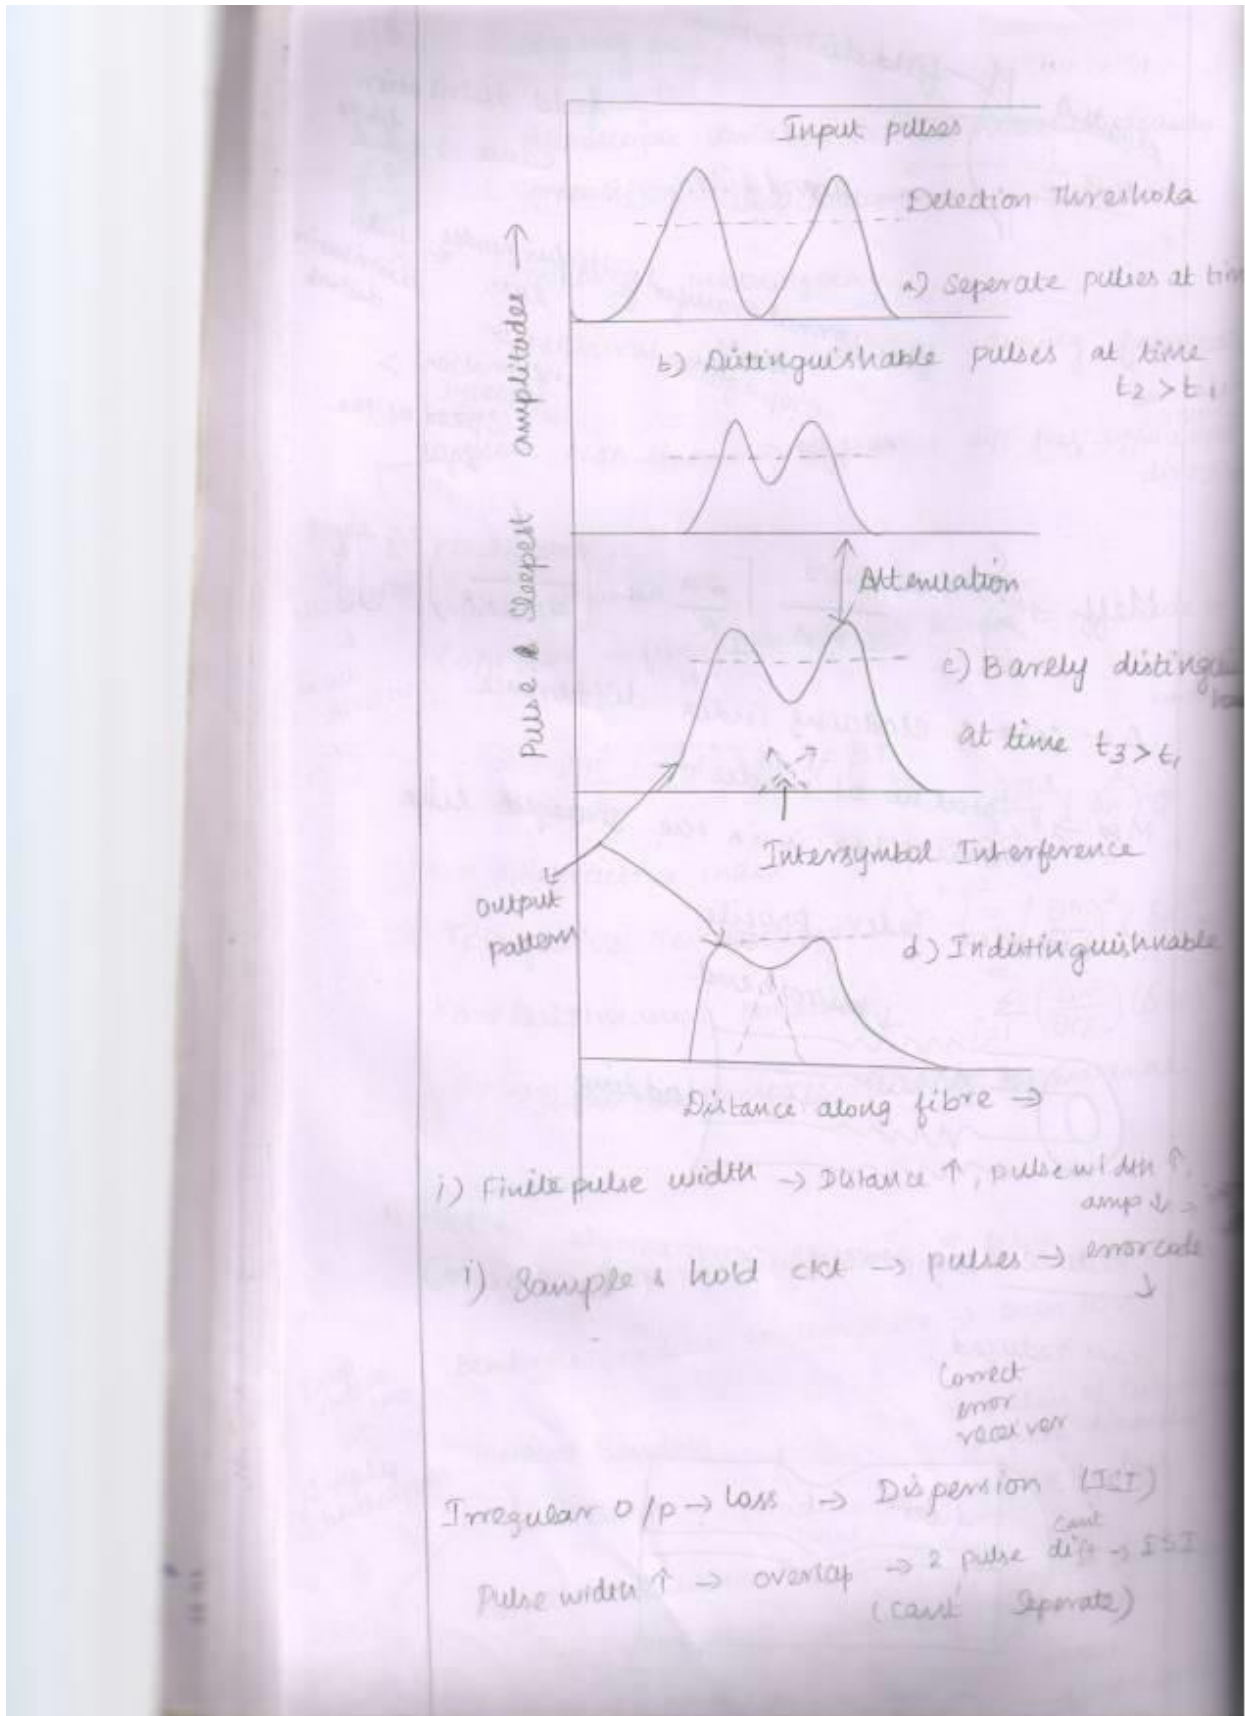 Input pulses
Detection Threshold
a) Seperate pulses at tim
b) Distinguishable pulses at time
t2 > t1
Pulse & Sleepest amplitudes →
Attenuation
c) Barely distingu
at time t3 > t1
Intersymbol Interference
output
pattern
d) Indistinguishnable
Distance along fibre →
i) Finite pulse width → Distance ↑, pulse width ↑,
amp ↓
i) Sample & hold ckt → pulses → error code
↓
Correct
error
receiver
Irregular O/p → Loss → Dispension (ISI)
cant
Pulse width ↑ → overlap → 2 pulse diff → ISI
(can't Seperate)